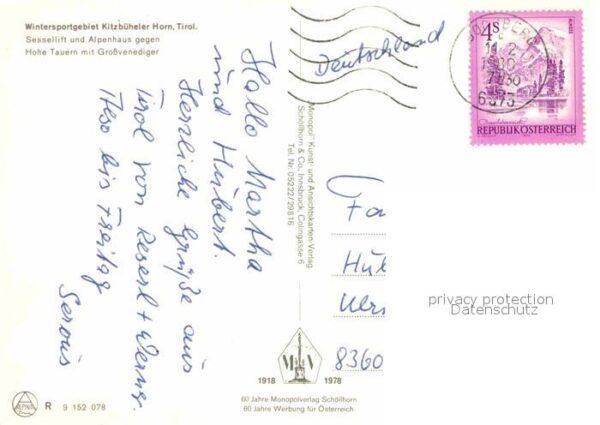 Wintersportgebiet Kitzbüheler Horn, Tirol.
Sessellift und Alpenhaus gegen
Hohe Tauern mit Großvenediger
Hallo Martha
und Hubert.
Herzliche Grüße aus
Tirol von Reserl + Werner.
Also bis Freitag
Servus
R 9 152 078
Monopol Kunst- und Ansichtskarten-Verlag
Schöllhorn & Co., Innsbruck, Colingasse 6
Tel. Nr. 05222/29816
MV
1918 1978
60 Jahre Monopolverlag Schöllhorn
60 Jahre Werbung für Österreich
Deutschland
4S
REPUBLIK ÖSTERREICH
6373
Fa
Hu
8360
privacy protection
Datenschutz